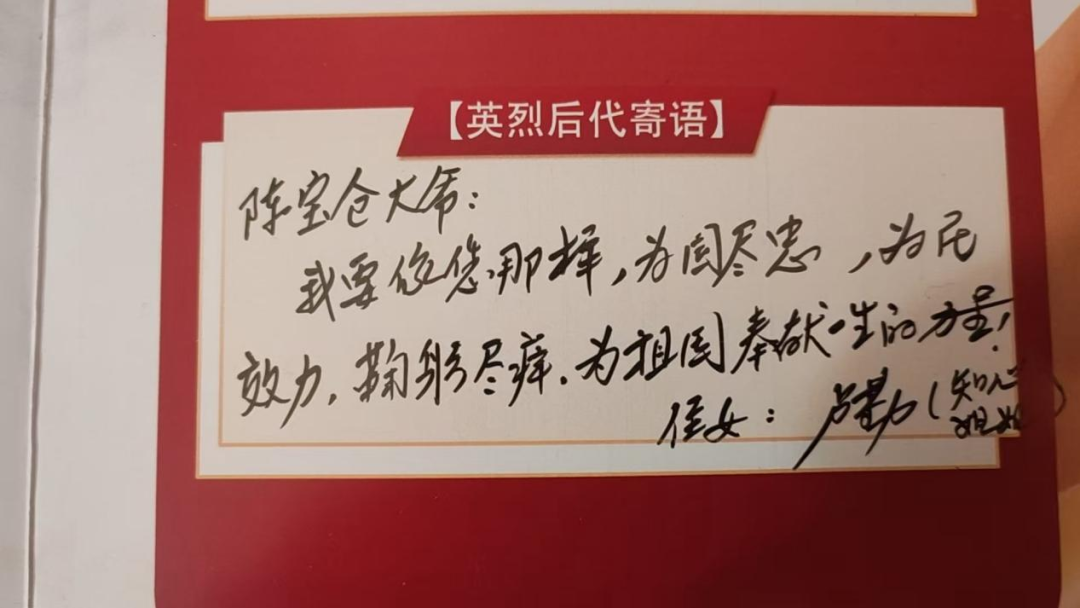 【英烈后代寄语】
陈宝仓大爷：
我要像您那样，为国尽忠，为民
效力，鞠躬尽瘁，为祖国奉献一生的力量！
侄女：卢勤（知心
姐姐）